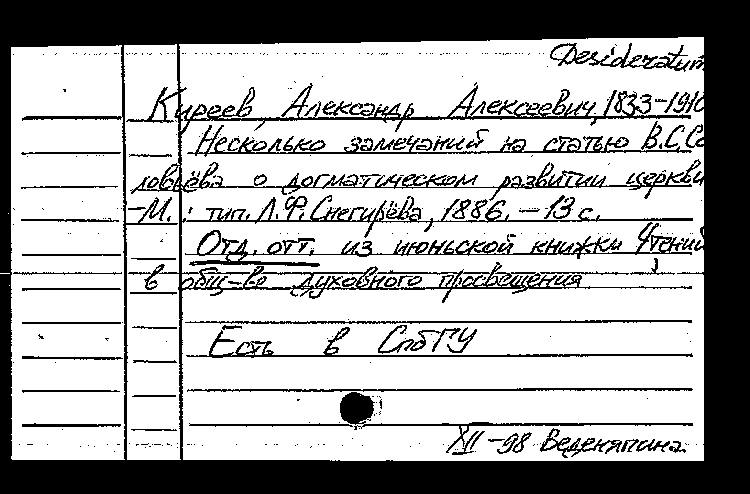 Desideratum
Киреев, Александр Алексеевич, 1833-1910
Несколько замечаний на статью В.С.Со
ловьёва о догматическом развитии церкви
-М. : тип. Л.Ф.Снегирёва, 1886. - 13 с.
Отд. отт. из июньской книжки Чтений
в общ-ве духовного просвещения
Есть в СпбГУ
XII-98 Веденяпина.